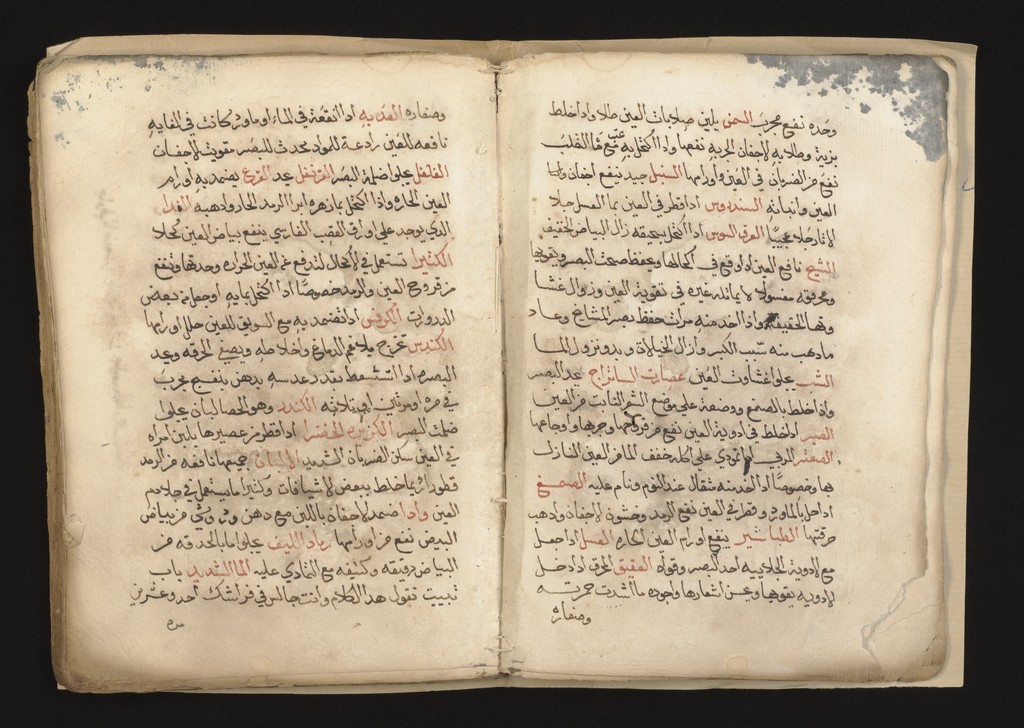 وحده نفع مجرب السمن يلين صلابات العين طلا واذا خلط
بزيت وطلا به الاجفان الجربه نفعها واذا اكتحل به مع ما القلب
نفع من الضربان في العين واورامها السنبل جيد ينفع اجفان
العين وانباته السندروس اذا قطر في العين بما العسل جلا
الاثار جلا عجيبا اذا اكتحل بسحيقه زال البياض الخفيف
الشيح نافع العين اذا وقع في اكحالها وحفظ صحت البصر ويقويها
ومحرقه مغسولا لا يماثله غيره في تقوية العين وزوال غشا
وتها الخفيفه واذا اخذ منه مرات حفظ بصر المشايخ وعاد
ما ذهب منه بسبب الكبر وازال الخيالات وبدو نزول الما
الشب يجلوا غشاوت العين عصارت السادراج يحد البصر
واذا خلط بالصمغ ووضعه على موضع الشعر النابت من العين
الصبر اذا خلط في ادوية العين نفع من قروحها وجربها واوجاعها
الصعتر المربى اذا تمودي على اكله خفف الما من العين النازل
بها وخصوصا اذا اخذ منه مثقال عند النوم ونام عليه الصمغ
اذا حل بالماورد وقطر في العين نفع الرمد وخشونة الاجفان واذهب
حرقتها الطباشير ينفع اورام العين الحاره العسل اذا جعل
مع الادوية الجلاييه احد البصر وقواه العقيق المحرق اذا دخل
الادويه يقويها وحسن اشفارها واجوده ما اشتدت حمرته
وصفاره
وصفاره الفديه اذا انقعة في الماء او ماورد كانت في الغايه
نافعه للعين رادعة للمواد محدث للبصر مقويت الاجفان
الفلفل يجلوا ظلمة البصر القرنفل يحد القرع يضمد به اورام
العين الحاره واذا اكتحل بماء زهره ابرا الرمد الحار واذهبه
الذي يوجد على اوراق القصب الفارسي ينفع بياض العين كحلا
الكثيرا تستعمل في الاكحال لتدفع عن العين الحراره وحدتها وتنفع
من قروح العين والرمد خصوصا اذا اكتحل بمايه او جعل مع بعض
الدرورات الكرفس اذا تضمد به مع السويق للعين حلل اورامها
الكندس يخرج بلاغم الدماغ واخلاطه ويصفي الحرقه ويحد
البصر اذا استسعط بقدر عدسه بدهن بنفسج مجرب
في مره او مرتين او ثلاثه الكندر وهو الحصالبان يجلوا
ظلمت البصر الكزبره الخضرا اذا قطر من عصيرها بلبن امراه
في العين سكن الضربان الشديد الالبان جميعها نافعه من الرمد
قطورا ربما خلط ببعض الاشيافات وكثيرا ما يستعمل في جلا جرم
العين واذا ضمد الاجفان باللبن مع دهن ورد وشي من بياض
البيض نفع من اورامها رماد الليف يجلوا ما بالحدقه من
البياض دقيقه وكثيفه مع التمادي عليه الما الشديد باب
تبييت تقول هذا الكلام وانت جالس في فراشك احد وعشرين
مره